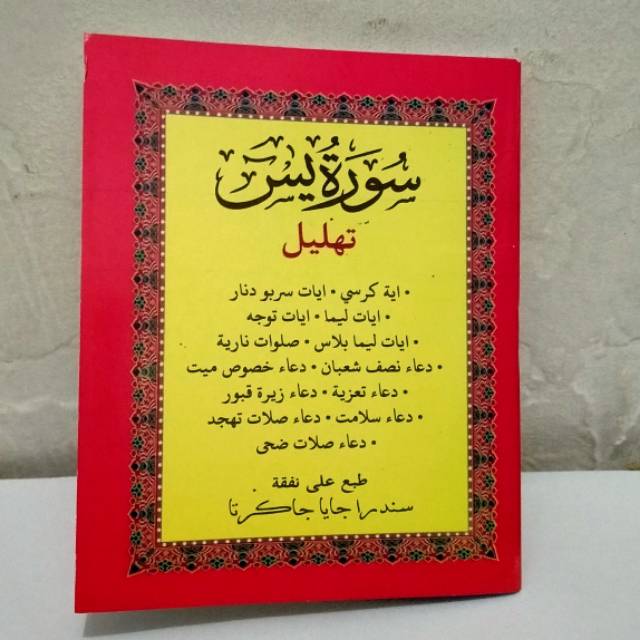 سُورَةُ يٰسٓ
تهليل
• اية كرسي • ايات سربو دنار
• ايات ليما • ايات توجه
• ايات ليما بلاس • صلوات نارية
• دعاء نصف شعبان • دعاء خصوص ميت
• دعاء تعزية • دعاء زيرة قبور
• دعاء سلامت • دعاء صلات تهجد
• دعاء صلات ضحى
طبع على نفقة
سندرا جايا جاكرتا